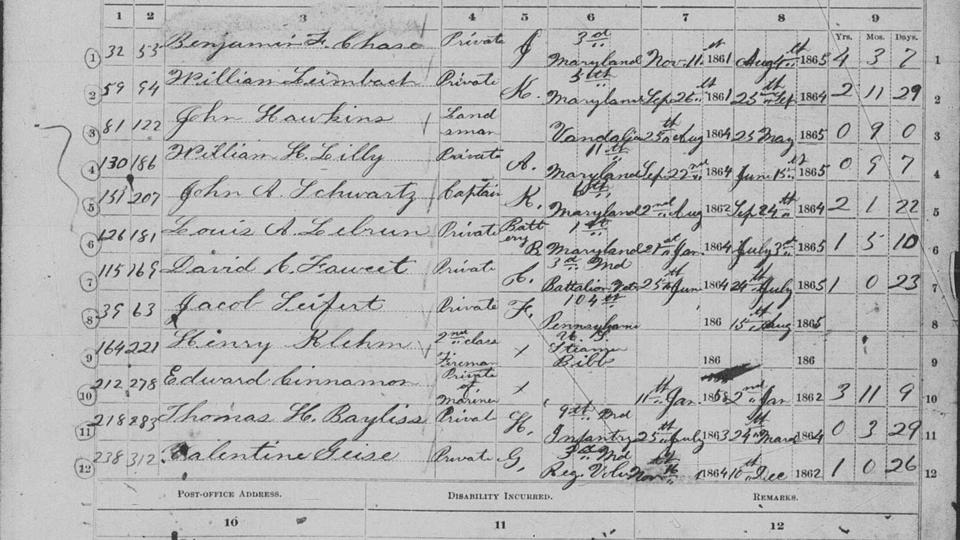 1 2 3 4 5 6 7 8 9
Yrs. Mos. Days.
1 32 53 Benjamin F. Chase Private J 3rd Maryland Nov. 11th 1861 Aug 4th 1865 4 3 7 1
2 59 94 William Leimbach Private K. 5th Maryland Sep. 26th 1861 25th Sep. 1864 2 11 29 2
3 81 122 John Hawkins Land sman Vandalia 25th Aug 1864 25 May 1865 0 9 0 3
4 130 186 William H. Lilly Private A. 11th Maryland Sep. 22nd 1864 June 15th 1865 0 9 7 4
5 151 207 John A. Schwartz Captain K. 6th Maryland 2nd Aug 1862 Sep 24th 1864 2 1 22 5
6 126 181 Louis A. Lebrun Private Batt ery B 1st Maryland Jan. 1864 July 3rd 1865 1 5 10 6
7 115 169 David C. Fawcet Private C. 3rd Md Battalion Vet. 25th June 1864 24th July 1865 1 0 23 7
8 39 63 Jacob Seifert Private F. 104th Pennsylvania 186 15th Aug 1865 8
9 164 221 Henry Klehm 2nd class Fireman x U. S. Steamer Bibb 186 186 9
10 212 278 Edward Cinnamon Private of Marines x 11th Jan. 1858 2nd Jan 1862 3 11 9 10
11 218 283 Thomas H. Bayliss Privat H. 9th Md Infantry 25th July 1863 24th March 1864 0 3 29 11
12 238 312 Valentine Geise Private G. 3rd Md Reg. Volu Nov 16th 1864 10th Dec 1862 1 0 26 12
POST-OFFICE ADDRESS. DISABILITY INCURRED. REMARKS.
10 11 12